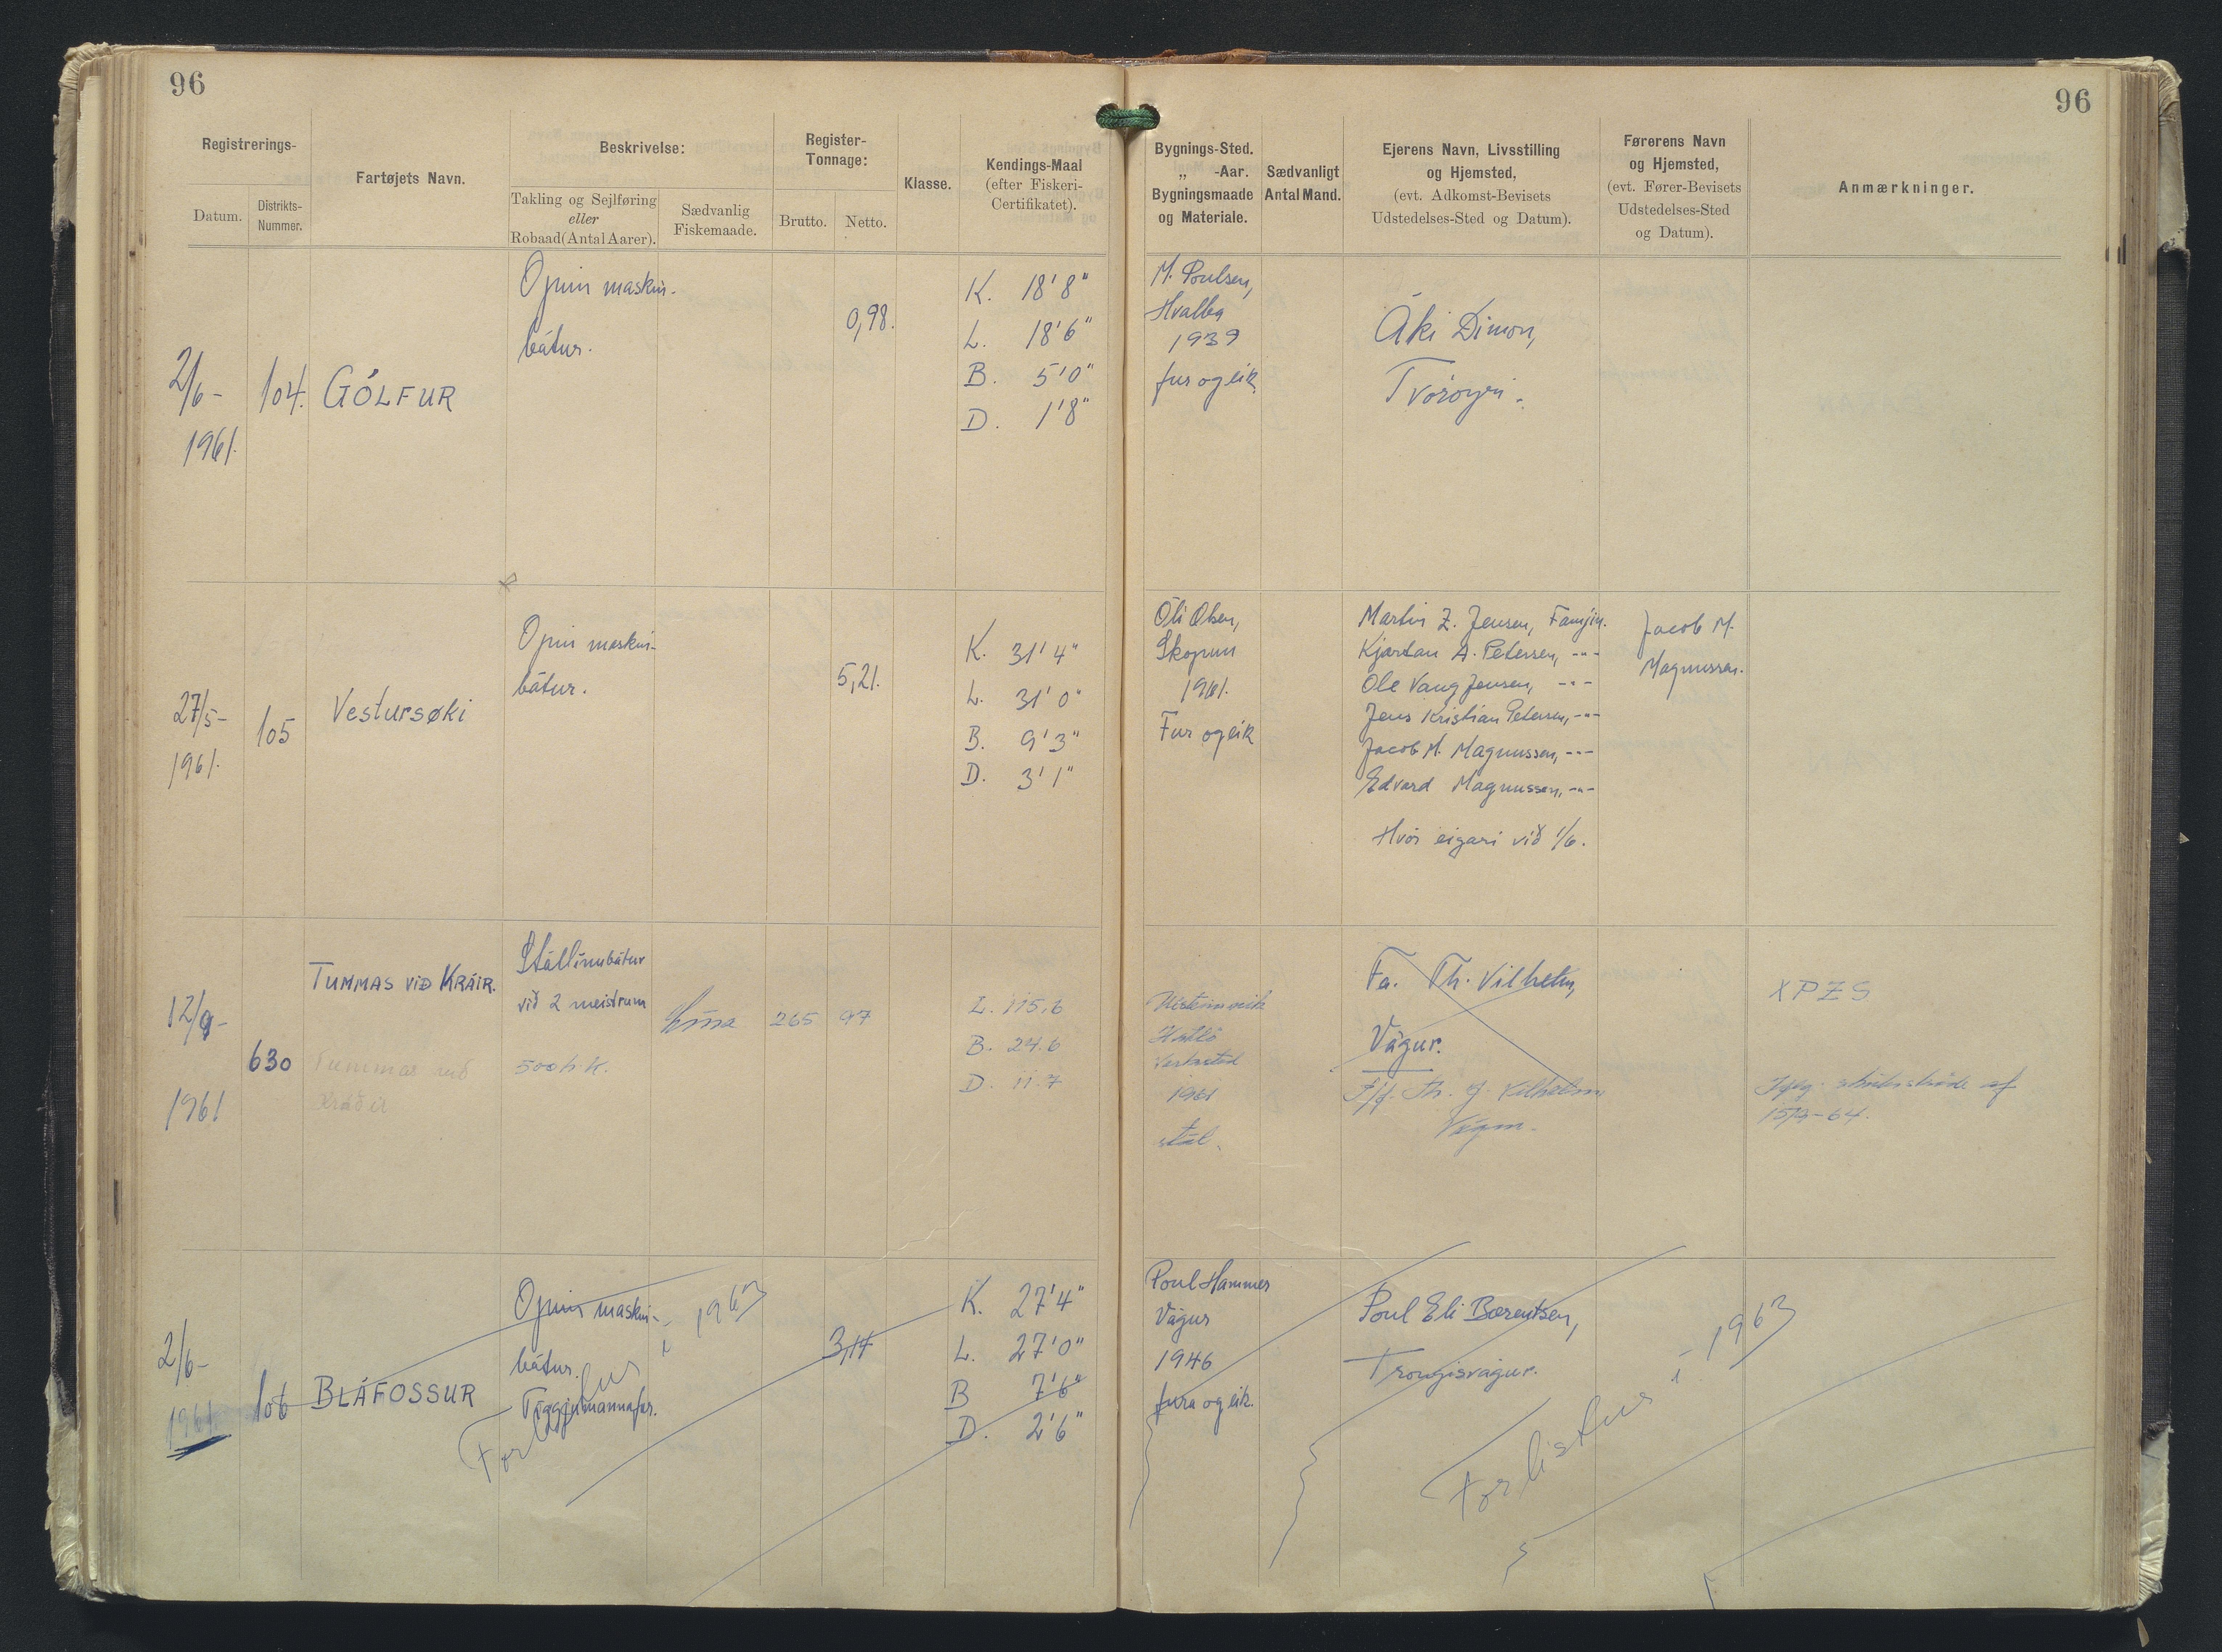 96
96
Registrerings-
Datum.
Distrikts-
Nummer.
Fartøjets Navn.
Beskrivelse:
Takling og Sejlføring
eller
Robaad (Antal Aarer).
Sædvanlig
Fiskemaade.
Register-
Tonnage:
Brutto.
Netto.
Klasse.
Kendings-Maal
(efter Fiskeri-
Certifikatet).
Bygnings-Sted.
„ -Aar.
Bygningsmaade
og Materiale.
Sædvanligt
Antal Mand.
Ejerens Navn, Livsstilling
og Hjemsted,
(evt. Adkomst-Bevisets
Udstedelses-Sted og Datum).
Førerens Navn
og Hjemsted,
(evt. Fører-Bevisets
Udstedelses-Sted
og Datum).
Anmærkninger.
2/6-
1961.
104.
GÓLFUR
Opin maskin-
bátur.
0,98.
K. 18'8"
L. 18'6"
B. 5'0"
D. 1'8"
M. Poulsen,
Hvalba
1939
fur og eik
Áki Dimon,
Tvøroyri.
27/5-
1961.
105
Vestursøki
Opin maskin-
bátur.
5,21.
K. 31'4"
L. 31'0"
B. 9'3"
D. 3'1"
Óli Olsen,
Skopun
1961.
Fur og eik
Martin Z. Jensen, Famjin.
Kjartan A. Petersen, -"-
Ole Vang Jensen, -"-
Jens Kristian Petersen, -"-
Jacob M. Magnussen, -"-
Edvard Magnussen, -"-
Hvør eigari við 1/6.
Jacob M.
Magnussen.
12/9-
1961
630
TUMMAS VIÐ KRÁIR.
Tummas við
Stállinubátur
við 2 meistrum
500 h.k.
Lína
265
97
L. 115.6
B. 24.6
D. 11.7
1961
stál.
Fa. Th. Vilhelm,
Vágur.
P/f. Th. J. Vilhelm,
Vágur.
XPZS
af
15/9-64.
2/6-
1961
106
BLÁFOSSUR
Opin maskin-
bátur.
Tríggjumannafar.
Forlistur í 1963
3,14
K. 27'4"
L. 27'0"
B 7'6"
D. 2'6"
Poul Hammer
Vágur
1946
fura og eik.
Poul Eli Bærentsen,
Trongisvágur.
Forlistur í 1963